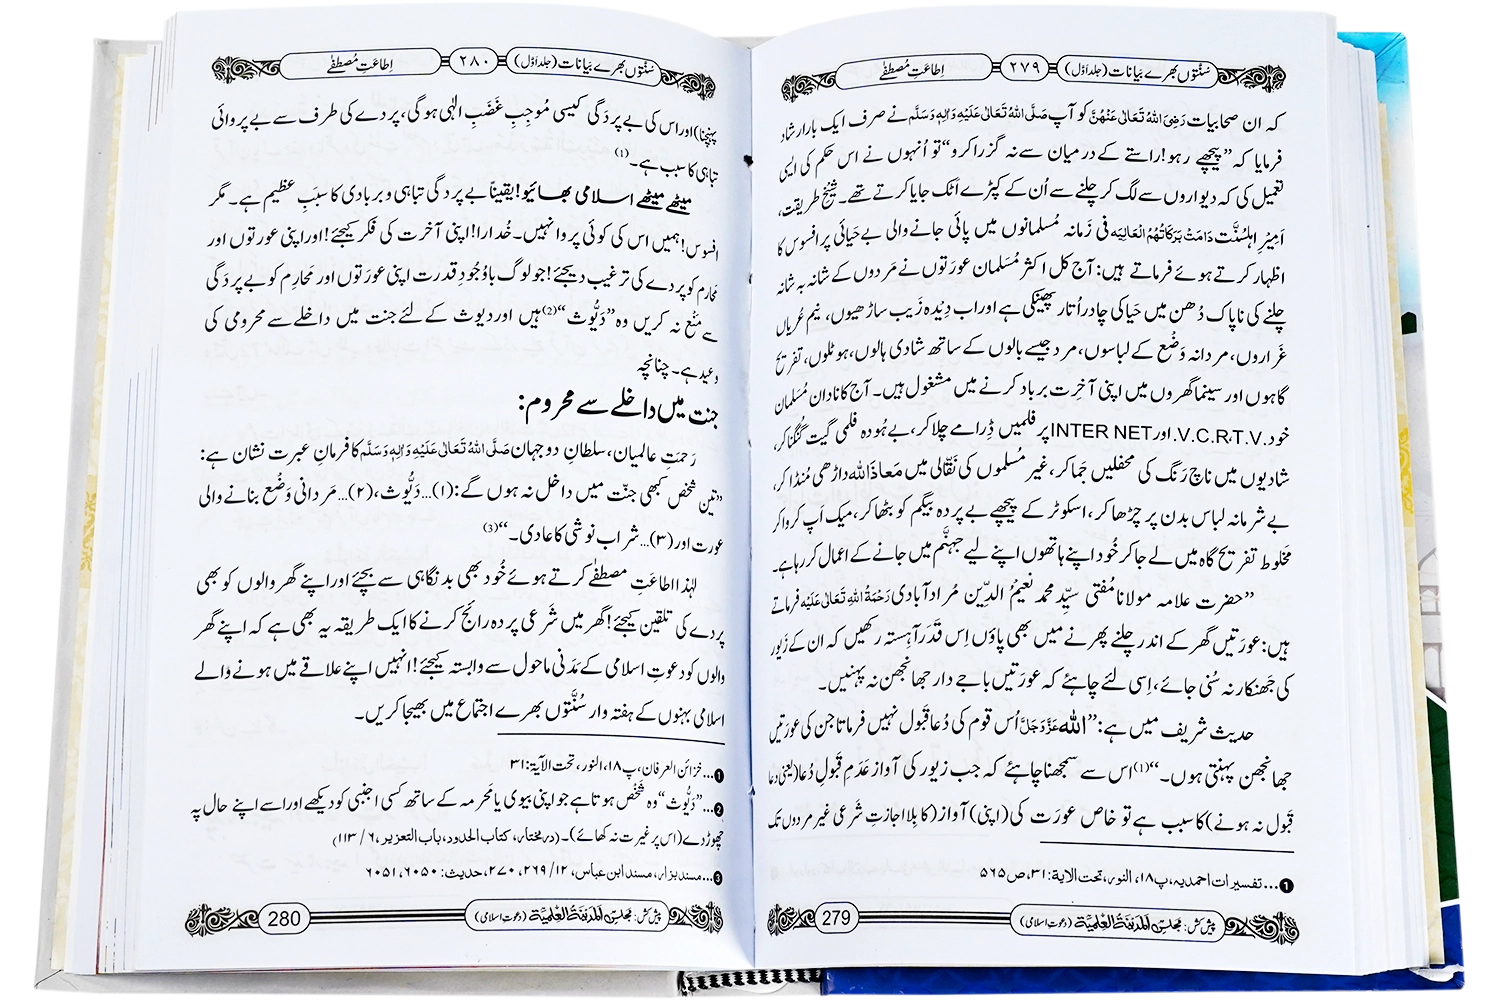 سُنّتوں بھرے بیانات (جلد اوّل) ۲۷۹ اطاعتِ مُصطفٰے
کہ ان صحابیات رَضِیَ اللہُ تَعَالٰی عَنْہُنَّ کو آپ صَلَّی اللہُ تَعَالٰی عَلَیْہِ وَاٰلِہٖ وَسَلَّم نے صرف ایک بار ارشاد
فرمایا کہ ”پیچھے رہو! راستے کے درمیان سے نہ گزرا کرو“ تو اُنہوں نے اس حکم کی ایسی
تعمیل کی کہ دیواروں سے لگ کر چلنے سے اُن کے کپڑے اٹک جایا کرتے تھے۔ شیخِ طریقت،
اَمیرِ اہلسُنَّت دَامَتْ بَرَکَاتُہُمُ الْعَالِیَہ فی زمانہ مُسلمانوں میں پائی جانے والی بے حَیائی پر افسوس کا
اظہار کرتے ہوئے فرماتے ہیں: آج کل اکثر مُسَلمان عورَتوں نے مَردوں کے شانہ بہ شانہ
چلنے کی ناپاک دُھن میں حَیا کی چادر اُتار پھینکی ہے اور اب دِیدہ زَیب ساڑھیوں، نیم عُریاں
غَراروں، مردانہ وَضْع کے لباسوں، مرد جیسے بالوں کے ساتھ شادی ہالوں، ہوٹلوں، تفریح
گاہوں اور سینما گھروں میں اپنی آخِرت برباد کرنے میں مشغول ہیں۔ آج کا نادان مُسلمان
خود V.C.R،T.V. اور INTER NET پر فلمیں ڈِرامے چلا کر، بے ہُودہ فلمی گیت گُنگُنا کر،
شادیوں میں ناچ رَنگ کی محفلیں جَما کر، غیر مُسلموں کی نَقّالی میں مَعاذَاللہ داڑھی مُنڈا کر،
بے شرمانہ لباس بدن پر چڑھا کر، اسکوٹر کے پیچھے بے پردہ بیگم کو بٹھا کر، میک اَپ کروا کر
مخلوط تفریح گاہ میں لے جا کر خُود اپنے ہاتھوں اپنے لیے جہنَّم میں جانے کے اعمال کر رہا ہے۔
”حضرت علامہ مولانا مُفتی سیِّد محمد نعیمُ الدِّین مُراد آبادی رَحْمَۃُ اللہِ تَعَالٰی عَلَیْہ فرماتے
ہیں: عورَتیں گھر کے اندر چلنے پھرنے میں بھی پاؤں اِس قَدَر آہستہ رکھیں کہ ان کے زَیور
کی جَھنکار نہ سُنی جائے، اِسی لئے چاہئے کہ عورَتیں باجے دار جھانجھن نہ پہنیں۔
حدیث شریف میں ہے: ”اللہ عَزَّوَجَلَّ اُس قوم کی دُعا قَبول نہیں فرماتا جن کی عورَتیں
جھانجھن پہنتی ہوں۔“(1) اس سے سمجھنا چاہئے کہ جب زیور کی آواز عَدَمِ قَبولِ دُعا (یعنی دعا
قَبول نہ ہونے) کا سبب ہے تو خاص عورَت کی (اپنی) آواز (کا بِلا اجازتِ شَرعی غیر مردوں تک
1...تفسیرات احمدیہ، پ۱۸، النور، تحت الایۃ: ۳۱، ص۵۶۵
پیش کش: مجلس المدینۃ العلمیۃ (دعوتِ اسلامی) 279
سُنّتوں بھرے بیانات (جلد اوّل) ۲۸۰ اطاعتِ مُصطفٰے
پہنچنا) اور اس کی بے پردَگی کیسی مُوجِبِ غَضَبِ الٰہی ہو گی، پردے کی طرف سے بے پروائی
تباہی کا سبب ہے۔(1)
میٹھے میٹھے اسلامی بھائیو! یقیناً بے پردگی تباہی و بربادی کا سبَبِ عظیم ہے۔ مگر
افسوس! ہمیں اس کی کوئی پروا نہیں۔ خُدارا! اپنی آخرت کی فکر کیجئے! اور اپنی عورتوں اور
مَحارِم کو پردے کی ترغیب دیجئے! جو لوگ باوُجودِ قدرت اپنی عورَتوں اور مَحارِم کو بے پردَگی
سے مَنْع نہ کریں وہ ”دَیُّوث“(2) ہیں اور دیوث کے لئے جنت میں داخلے سے محرومی کی
وعید ہے۔ چنانچہ
جنت میں داخلے سے محروم:
رَحمَتِ عالمیان، سلطانِ دوجہان صَلَّی اللہُ تَعَالٰی عَلَیْہِ وَاٰلِہٖ وَسَلَّم کا فرمانِ عبرت نشان ہے:
”تین شخص کبھی جنّت میں داخل نہ ہوں گے: (۱)...دَیُّوث، (۲)...مَردانی وَضْع بنانے والی
عورت اور (۳)...شراب نوشی کا عادی۔“(3)
لہٰذا اطاعتِ مصطفٰے کرتے ہوئے خُود بھی بدنگاہی سے بچئے اور اپنے گھر والوں کو بھی
پردے کی تلقین کیجئے! گھر میں شَرعی پردہ رائج کرنے کا ایک طریقہ یہ بھی ہے کہ اپنے گھر
والوں کو دعوتِ اسلامی کے مَدَنی ماحول سے وابستہ کیجئے! انہیں اپنے علاقے میں ہونے والے
اسلامی بہنوں کے ہفتہ وار سُنَّتوں بھرے اجتماع میں بھیجا کریں۔
1...خزائن العرفان، پ۱۸، النور، تحت الآیۃ: ۳۱
2...”دَیُّوث“ وہ شَخْص ہوتا ہے جو اپنی بیوی یا محرمہ کے ساتھ کسی اجنبی کو دیکھے اور اسے اپنے حال پہ
چھوڑ دے (اس پر غیرت نہ کھائے)۔ (درمختار، کتاب الحدود، باب التعزیر، ۶/ ۱۱۳)
3...مسند بزار، مسند ابن عباس، ۱۲/ ۲۶۹، ۲۷۰، حدیث: ۶۰۵۰، ۶۰۵۱
پیش کش: مجلس المدینۃ العلمیۃ (دعوتِ اسلامی) 280